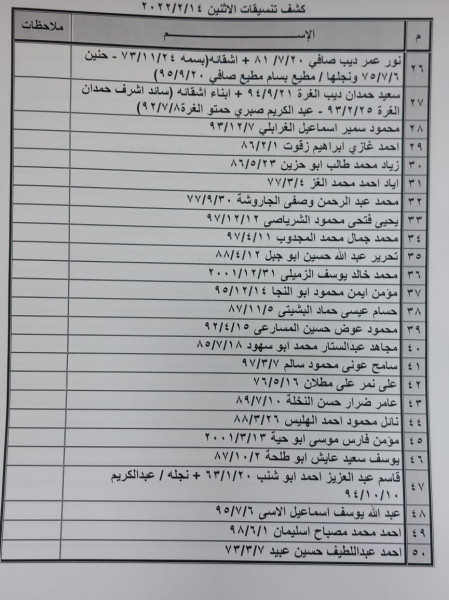 كشف تنسيقات الاثنين ٢٠٢٢/٢/١٤
م الإســـــم ملاحظات
٢٦ نور عمر ديب صافي ٨١/٧/٢٠ + اشقائه(بسمه ٧٣/١١/٢٤ - حنين
٧٥/٧/٦ ونجلها / مطيع بسام مطيع صافي ٩٥/٩/٢٠)
٢٧ سعيد حمدان ديب الغرة ٩٤/٩/٢١ + ابناء اشقائه (سائد اشرف حمدان
الغرة ٩٣/٢/٢٥ - عبد الكريم صبري حمتو الغرة ٩٢/٧/٨)
٢٨ محمود سمير اسماعيل الغرابلي ٩٣/١٢/٧
٢٩ احمد غازي ابراهيم زقوت ٨٦/٢/١
٣٠ زياد محمد طالب ابو حزين ٨٦/٥/٢٣
٣١ اياد احمد محمد الغز ٧٧/٣/٤
٣٢ محمد عبد الرحمن وصفى الجاروشة ٧٧/٩/٣٠
٣٣ يحيى فتحى محمود الشرباصى ٩٧/١٢/١٢
٣٤ محمد جمال محمد المجدوب ٩٧/٤/١١
٣٥ تحرير عبد الله حسين ابو جبل ٨٨/٤/١٢
٣٦ محمد خالد يوسف الزميلى ٢٠٠١/١٢/٣١
٣٧ مؤمن ايمن محمود ابو النجا ٩٥/١٢/١٤
٣٨ حسام عيسى حماد البشيتى ٨٧/١١/٥
٣٩ محمود عوض حسين المسارعى ٩٢/٤/١٥
٤٠ مجاهد عبدالستار محمد ابو سهود ٨٥/٧/١٨
٤١ سامح عونى محمود سالم ٩٧/٣/٧
٤٢ على نمر على مطلان ٧٦/٥/١٦
٤٣ عامر ضرار حسن النخلة ٨٩/٧/١٠
٤٤ نائل محمود احمد الهليس ٨٨/٣/٢٦
٤٥ مؤمن فارس موسى ابو حية ٢٠٠١/٣/١٣
٤٦ يوسف سعيد عايش ابو طلحة ٨٧/١٠/٢
٤٧ قاسم عبد العزيز احمد ابو شنب ٦٣/١/٢٠ + نجله / عبدالكريم
٩٤/١٠/١٠
٤٨ عبد الله يوسف اسماعيل الاسى ٩٥/٧/٦
٤٩ احمد محمد مصباح اسليمان ٩٨/٦/١
٥٠ احمد عبداللطيف حسين عبيد ٧٣/٣/٧